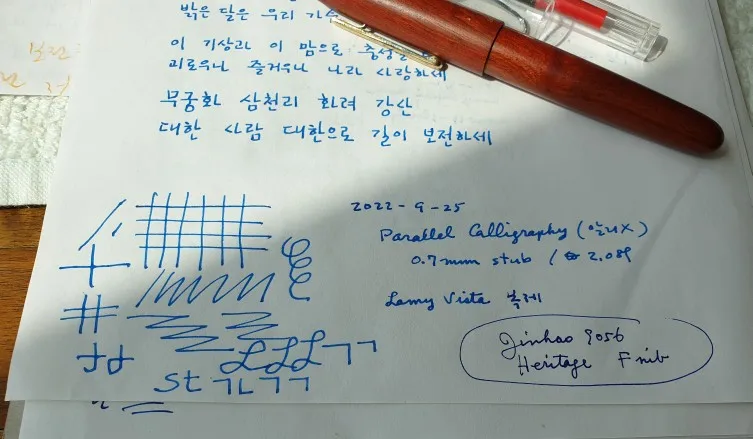 밝은 달은 우리 가슴
이 기상과 이 맘으로 충성을
괴로우나 즐거우나 나라 사랑하세
무궁화 삼천리 화려 강산
대한 사람 대한으로 길이 보전하세
2022-9-25
Parallel Calligraphy (알리X)
0.7mm stub /
Lamy Vista 복제
Jinhao 9056
Heritage F nib
LLL ㄱㄱ
st ㄱㄴㄱㄱ